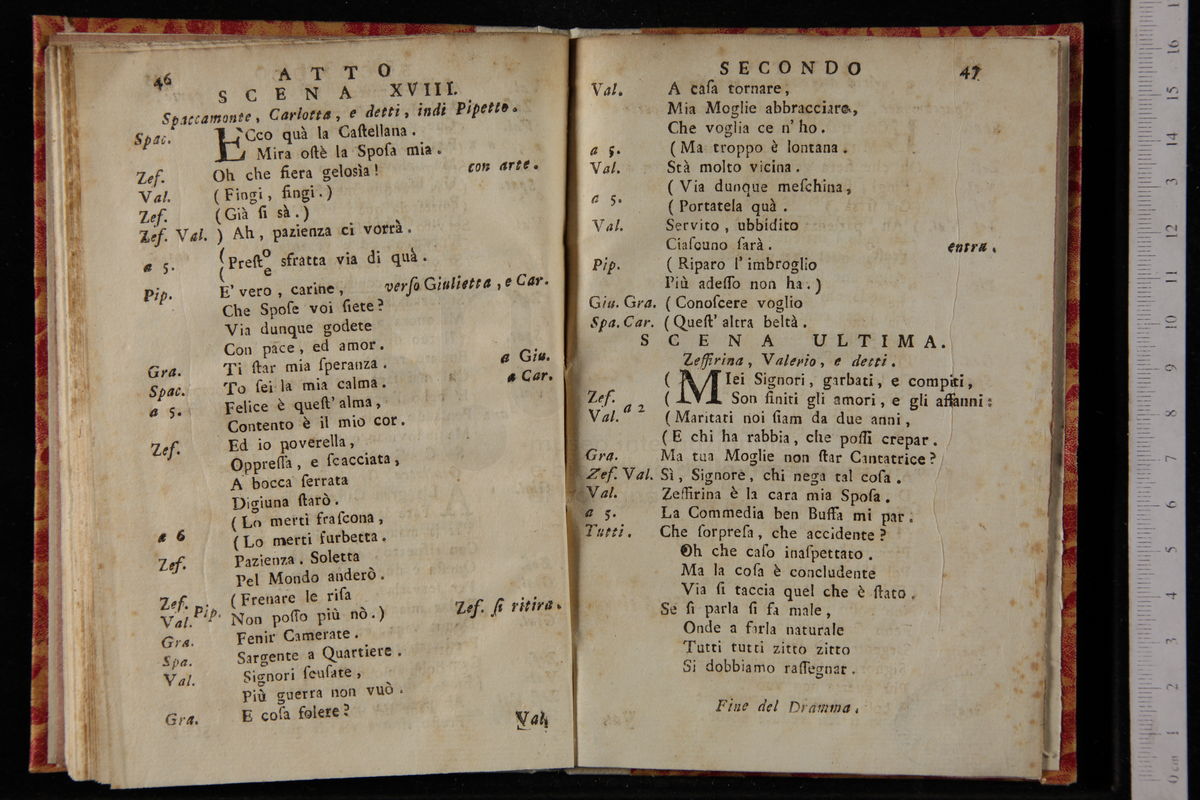 46
ATTO
SCENA XVIII.
Spaccamonte, Carlotta, e detti, indi Pipetto.
Spac. ECco quà la Caſtellana.
Mira oſtè la Spoſa mia.
Zef. Oh che fiera gelosìa! con arte.
Val. (Fingi, fingi.)
Zef. (Già ſi sà.)
Zef. Val. ) Ah, pazienza ci vorrà.
a 5. (Preſto e sfratta via di quà.
Pip. E' vero, carine, verſo Giulietta, e Car.
Che Spoſe voi ſiete?
Via dunque godete
Con pace, ed amor.
Gra. Ti ſtar mia ſperanza. a Giu.
Spac. To ſei la mia calma. a Car.
a 5. Felice è queſt' alma,
Contento è il mio cor.
Zef. Ed io poverella,
Oppreſſa, e ſcacciata,
A bocca ſerrata
Digiuna ſtarò.
(Lo merti fraſcona,
a 6 (Lo merti furbetta.
Zef. Pazienza. Soletta
Pel Mondo anderò.
Zef. (Frenare le riſa
Val. Pip. Non poſſo più nò.) Zef. ſi ritira.
Gra. Fenir Camerate.
Spa. Sargente a Quartiere.
Val. Signori ſcuſate,
Più guerra non vuò.
Gra. E coſa folere?
Val.
SECONDO
47
Val. A caſa tornare,
Mia Moglie abbracciare,
Che voglia ce n' ho.
a 5. (Ma troppo è lontana.
Val. Stà molto vicina.
(Via dunque meſchina,
a 5. (Portatela quà.
Val. Servito, ubbidito
Ciaſcuno ſarà. entra.
Pip. (Riparo l' imbroglio
Più adeſſo non ha.)
Giu. Gra. (Conoſcere voglio
Spa. Car. (Queſt' altra beltà.
SCENA ULTIMA.
Zeffirina, Valerio, e detti.
( MIei Signori, garbati, e compiti,
Zef. ( Son finiti gli amori, e gli affanni:
Val. a 2 (Maritati noi ſiam da due anni,
(E chi ha rabbia, che poſſi crepar.
Gra. Ma tua Moglie non ſtar Cantatrice?
Zef. Val. Sì, Signore, chi nega tal coſa.
Val. Zeffirina è la cara mia Spoſa.
a 5. La Commedia ben Buffa mi par.
Tutti. Che ſorpreſa, che accidente?
Oh che caſo inaſpettato.
Ma la coſa è concludente
Via ſi taccia quel che è ſtato.
Se ſi parla ſi fa male,
Onde a farla naturale
Tutti tutti zitto zitto
Si dobbiamo raſſegnar.
Fine del Dramma.
0 cm 1 2 3 4 5 6 7 8 9 10 11 12 13 14 15 16